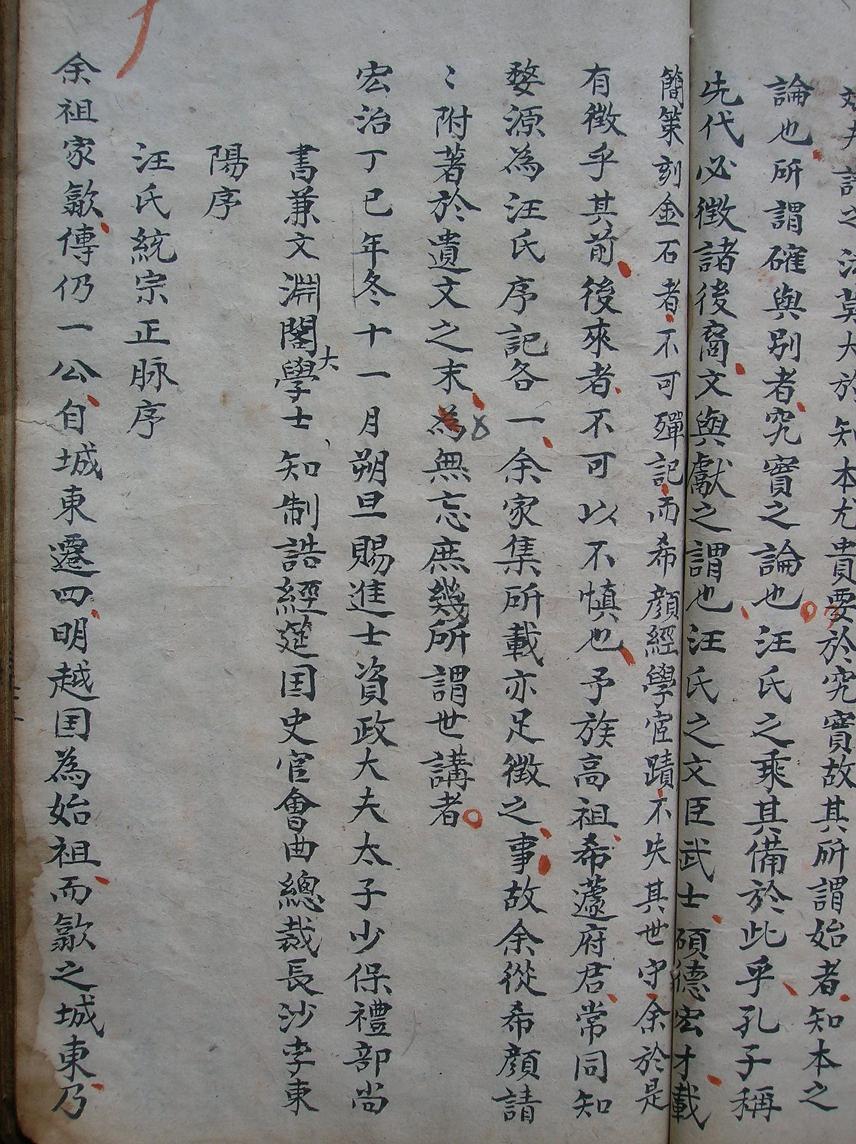 於知本尤貴要於究實故其所謂始者知本之
論也所謂確與別者究實之論也汪氏之乘其備於此乎孔子稱
先代必徵諸後裔文與獻之謂也汪氏之文臣武士碩德宏才載
簡策刻金石者不可殫記而希顏經學宦蹟不失其世守余於是
有徵乎其前後來者不可以不慎也予族高祖希蘧府君常同知
婺源為汪氏序記各一余家集所載亦足徵之事故余從希顏請
〻附著於遺文之末為無忘庶幾所謂世講者
宏治丁巳年冬十一月朔旦賜進士資政大夫太子少保禮部尚
書兼文淵閣大學士知制誥經筵国史官會典總裁長沙李東
陽序
汪氏統宗正脉序
余祖家歙傳仍一公自城東遷四明越国為始祖而歙之城東乃